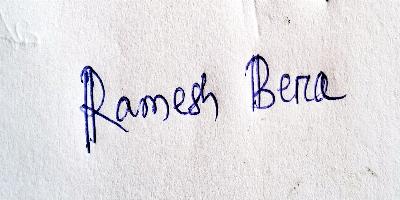 Ramesh Bera